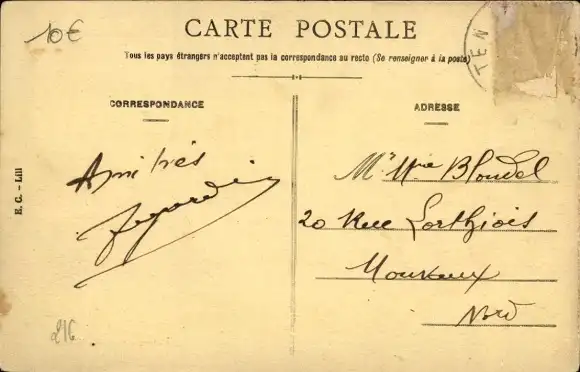 10€
CARTE POSTALE
Tous les pays étrangers n'acceptent pas la correspondance au recto (Se renseigner à la poste)
TEN
CORRESPONDANCE
ADRESSE
E. C. – Lill
Amitiés
Mr Mme Blondel
20 Rue Lorthiois
Mouveaux
Nord
216